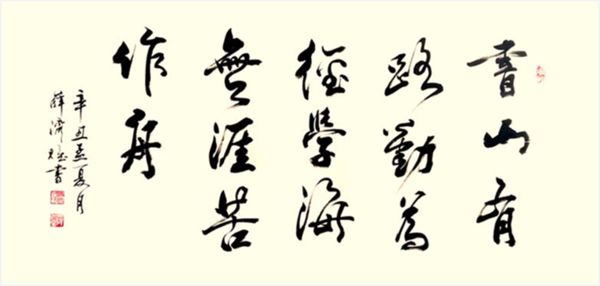 書山有
路勤為
徑學海
無涯苦
作舟
辛丑孟夏月
薛濟書